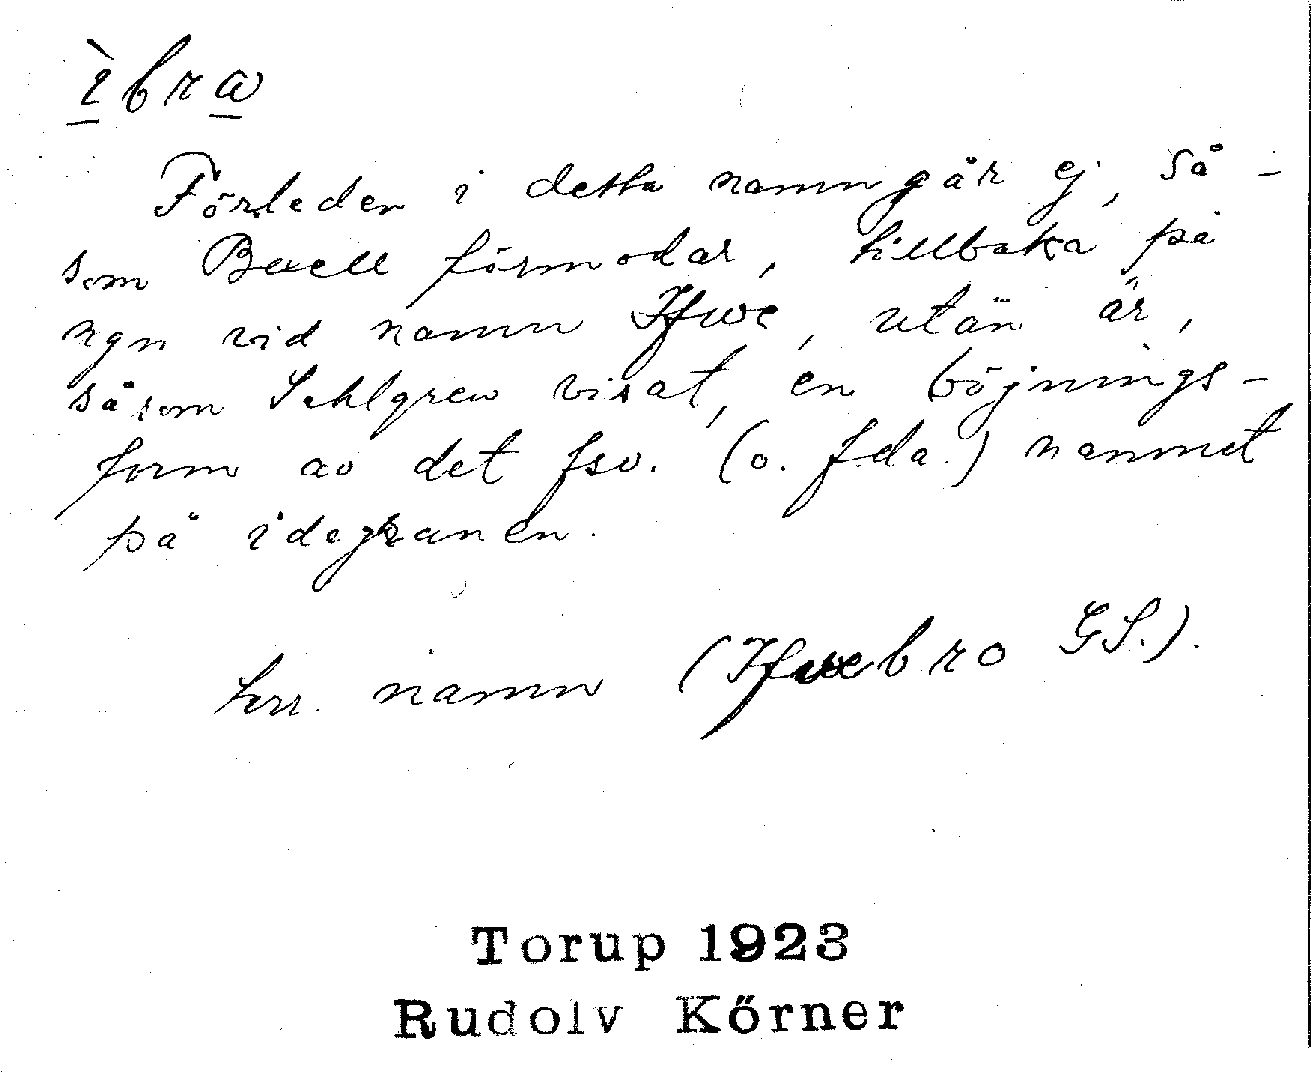 ìbra
Förleden i detta namn går ej, så-
som Bexell förmodar, tillbaka på
ngn vid namn Ifwe, utan är,
såsom Sahlgren visat, en böjnings-
form av det fsv. (o. fda.) namnet
på idegranen.
herr. namn (Ifwebro GS.).
Torup 1923
Rudolv Körner